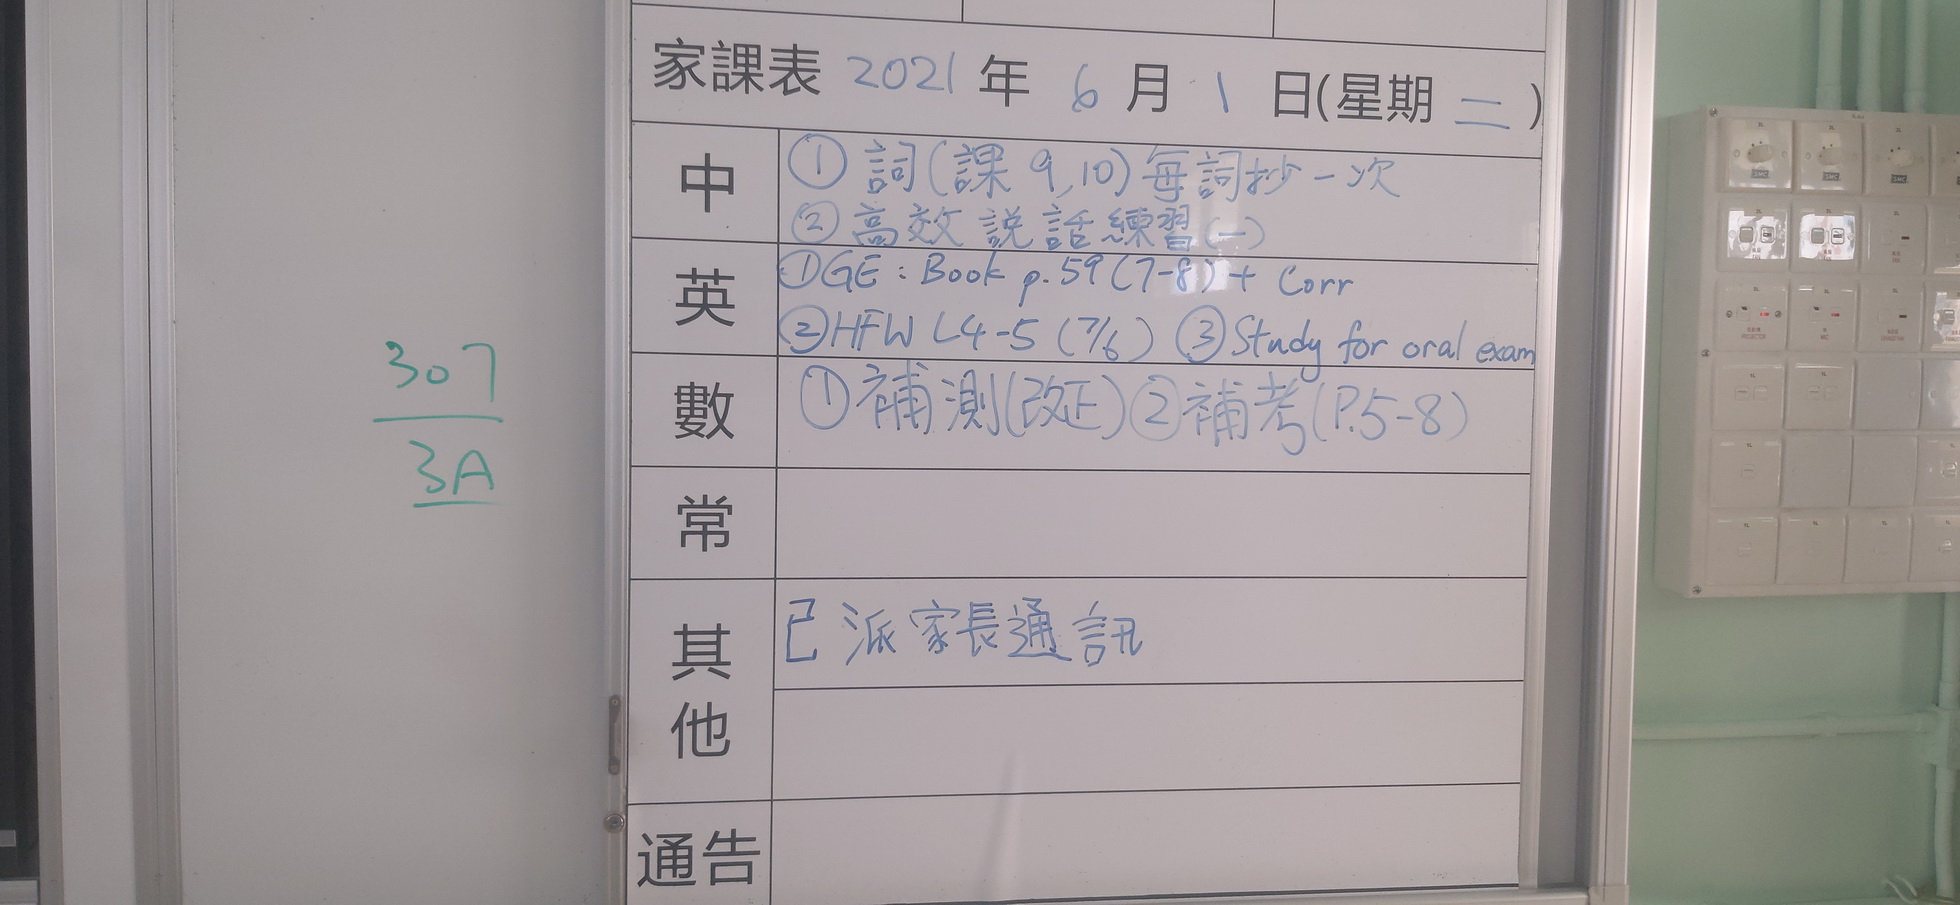 家課表 2021 年 6 月 1 日(星期 二)
中
① 詞(課 9,10)每詞抄一次
② 高效說話練習(一)
英
①GE : Book p.59 (7-8) + Corr
②HFW L4-5 (7/6) ③Study for oral exam
數
①補測(改正)②補考(P.5-8)
常
其他
已派家長通訊
通告
307
3A